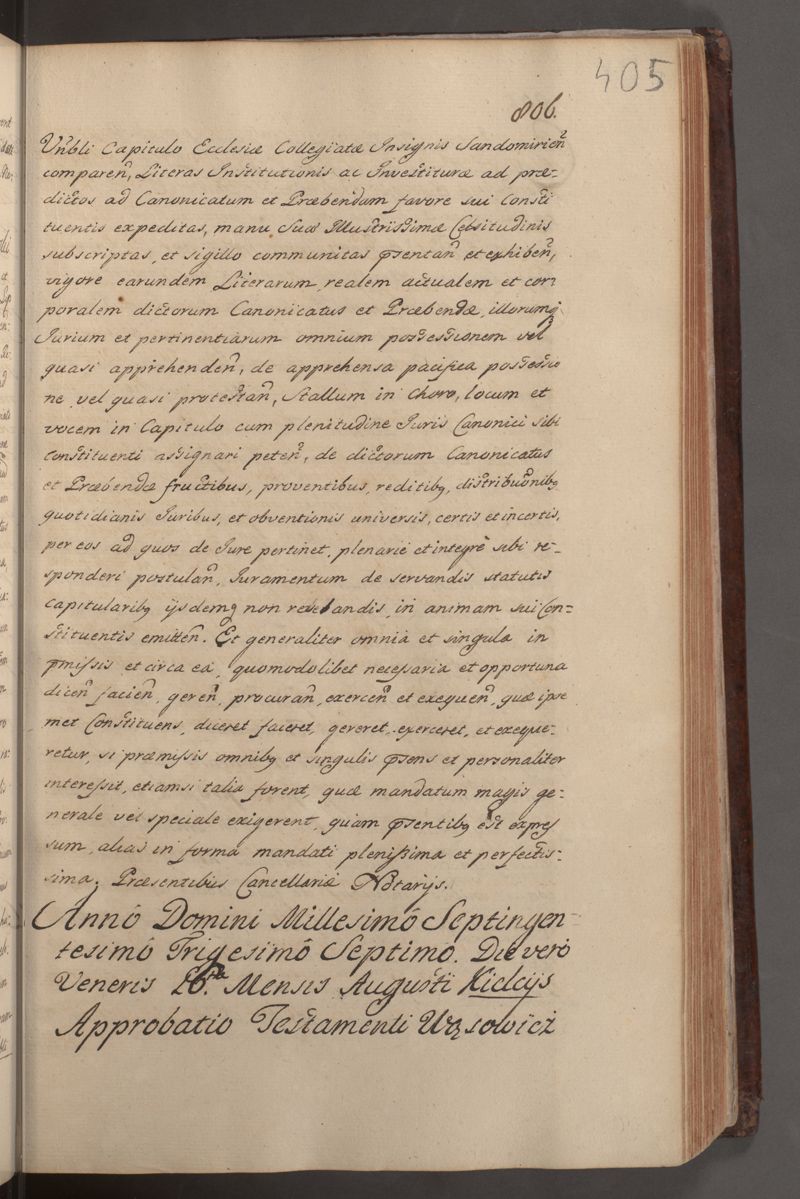 405
806.
Vnbli Capitulo Ecclesiæ Collegiatæ Insignis Sandomirien̄
comparen̄, Literas Institutionis ac Investituræ ad præ-
dictos ad Canonicatum et Præbendam favore sui Consti
tuentis expeditas, manu Suæ Illustrissimæ Celsitudinis
subscriptas, et sigillo communitas p̄sentan̄ et exhiben̄,
vigore earundem Literarum, realem actualem et cor-
poralem dictorum Canonicatus et Præbendæ, illorumq
Jurium et pertinentiarum omnium possessionem vel
quasi apprehenden̄, de apprehensa pacifica possessio
ne vel quasi protestan̄, Stallum in Choro, locum et
vocem in Capitulo cum plenitudine Juris Canonici sibi
Constituenti assignari peten̄, de dictorum Canonicatus
et Præbendæ fructibus, proventibus, reditibq, distribuōnibq
quotidianis Juribus, et obventionis universis, certis et incertis,
per eos ad quos de Jure pertinet, plenariè et integrè sibi re-
sponderi postulan̄, Juramentum de servandis statutis
capitularibq ijsdemq non revelandis, in animam sui Con=
stituentis emitten̄. Et generaliter omnia et singula in
p̄missis et circa ea, quomodolibet necessaria et opportuna
dicen̄ facien̄, geren̄, procuran̄, exercen̄ et exequen̄, quæ ipse
met Constituens, diceret faceret, gereret, exerceret, et exeque-
retur, si præmissis omnibq et singulis p̄sens et personaliter
interessit, etiamsi talia forent, quæ mandatum magis ge=
nerale vel speciale exigerent, quam p̄sentibq est expres
sum, alias in forma mandati plenissima et perfectis-
sima; Præsentibus Cancellariæ Notarijs.
Annô Domini Millesimô Septingen=
tesimô Trigesimô Septimo. Die verò
Veneris 16ta Mensis Augusti Kielcijs
Approbatio Testamenti Wąsowicz